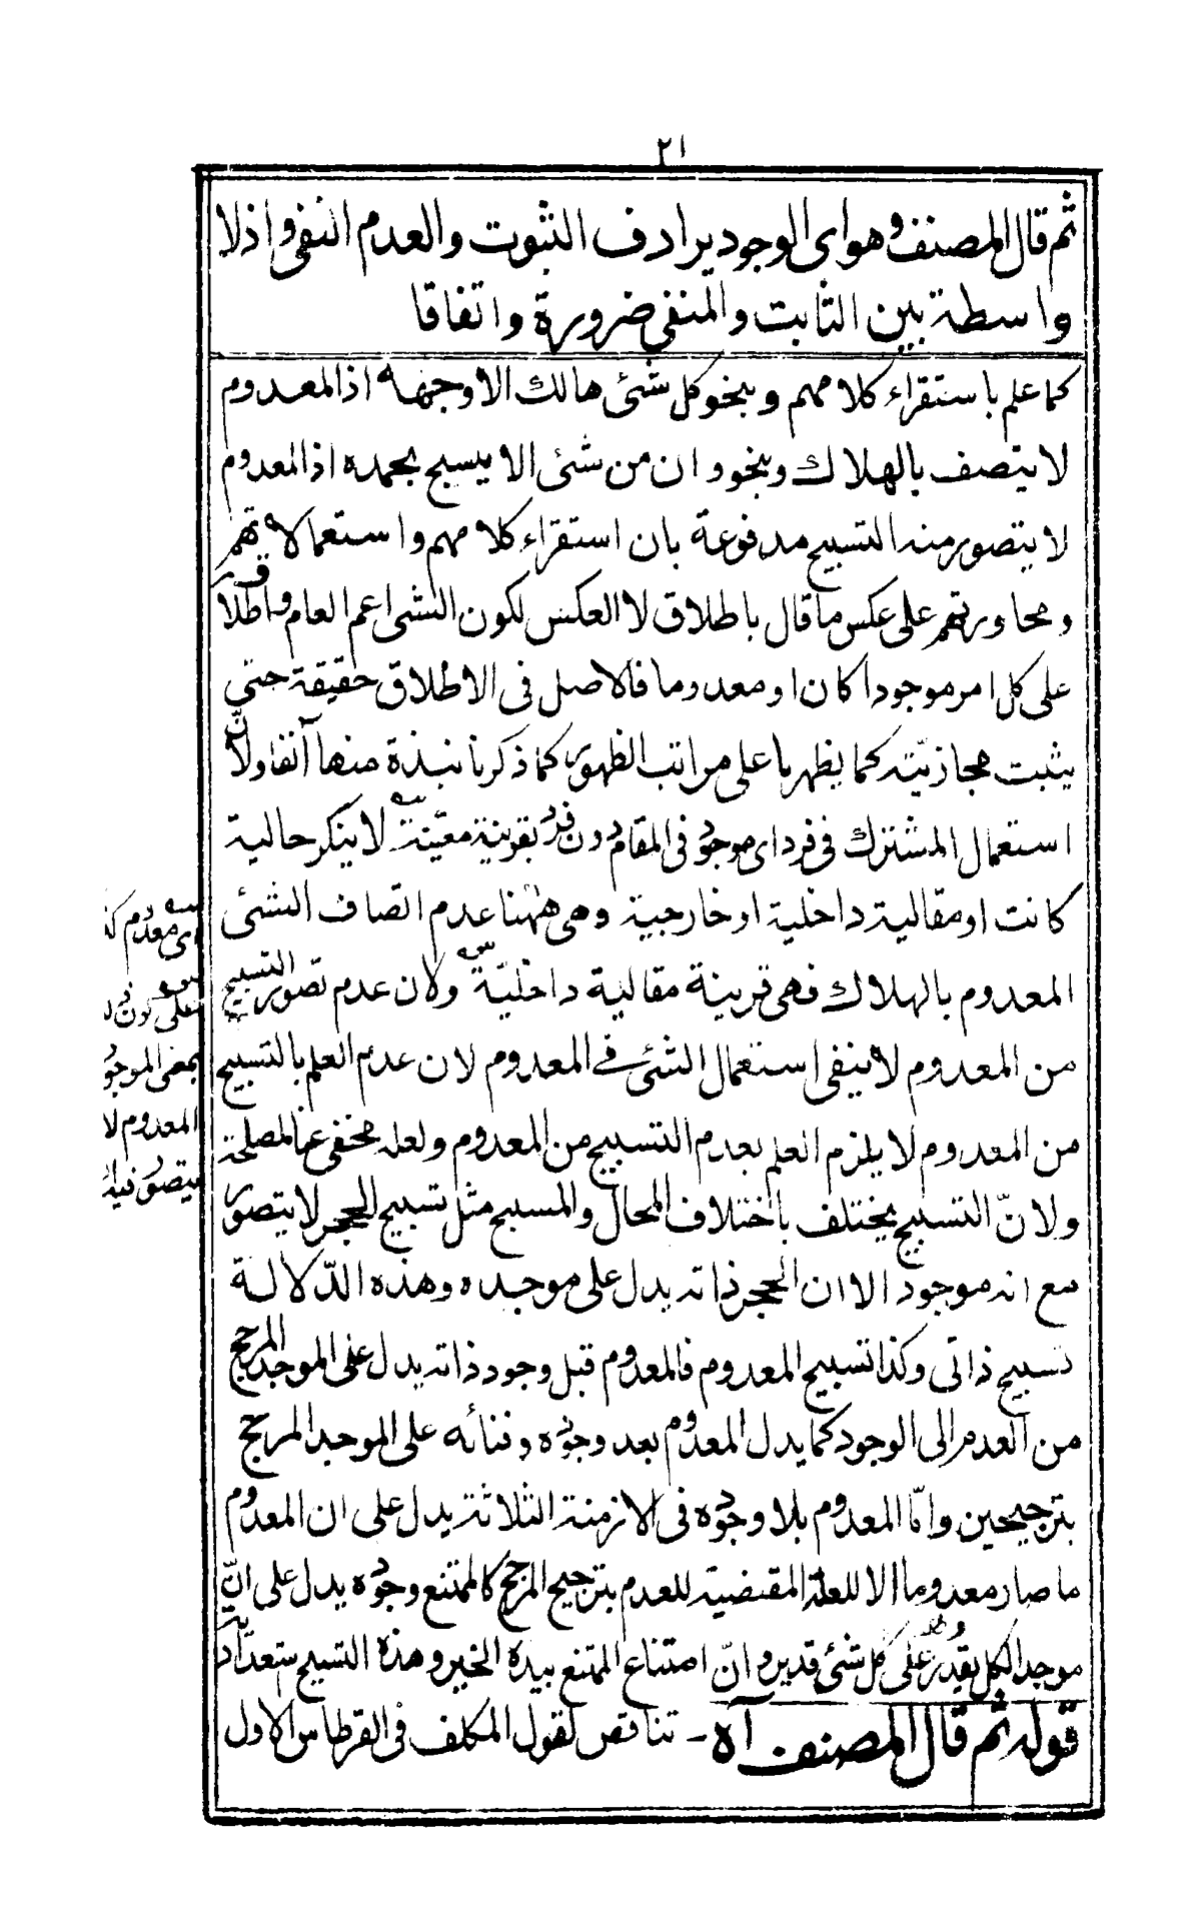 ٢١
ثم قال المصنف وهو اى الوجود يرادف الثبوت والعدم النفى واذلا
واسطة بين الثابت والمنفى ضرورة واتفاقا
كما علم باستقراء كلامهم وبنحو كل شئى هالك الا وجهه اذ المعدوم
لا يتصف بالهلاك وبنحو وان من شئى الا يسبح بحمده اذ المعدوم
لا يتصور منه التسبيح مدفوعة بان استقراء كلامهم واستعمالاتهم
ومحاوراتهم على عكس ما قال باطلاق لا العكس لكون الشئى اعم العام واطلاقه
على كل امر موجودا كان او معدوما فالاصل فى الاطلاق حقيقة حتى
يثبت مجازيّته كما يظهر با على مراتب الظهور كما ذكرنا نبذة منها آنفا ولانّ
استعمال المشترك فى فرد اى موجود فى المقام دون فرد بقرينة معيّنة لا ينكر حالية
كانت او مقالية داخلية او خارجية وهى ههنا عدم اتصاف الشئى
المعدوم بالهلاك فهى قرينة مقالية داخليّة ولان عدم تصور التسبيح
من المعدوم لا ينفى استعمال الشئى فى المعدوم لان عدم العلم بالتسبيح
من المعدوم لا يلزم العلم بعدم التسبيح من المعدوم ولعله مخفى عنا لمصلحة
ولانّ التسبيح يختلف باختلاف المحال والمسبح مثل تسبيح الحجر لا يتصور
مع انه موجود الا ان الحجر ذاته يدل على موجده وهذه الدّلالة
تسبيح ذاتى وكذا تسبيح المعدوم فالمعدوم قبل وجود ذاته يدل على الموجد المرجح
من العدم الى الوجود كما يدل المعدوم بعد وجوده وفنائه على الموجد المرجح
بترجيحين وامّا المعدوم بلا وجوده فى الازمنة الثلاثة يدل على ان المعدوم
ما صار معدوما الا للعلة المقتضية للعدم بترجيح المرجح كالممتنع وجوده يدل على انّ
موجد الكل بقدرته على كل شئى قدير وانّ امتناع الممتنع بيده الخير وهذه التسبيح ستعداديّة
قوله ثم قال المصنف آه ـ تناقص لقول المكلف فى القرطاس الاول
اى معدوم
على
بمعنى الموجود
المعدوم لا
يتصور فيه